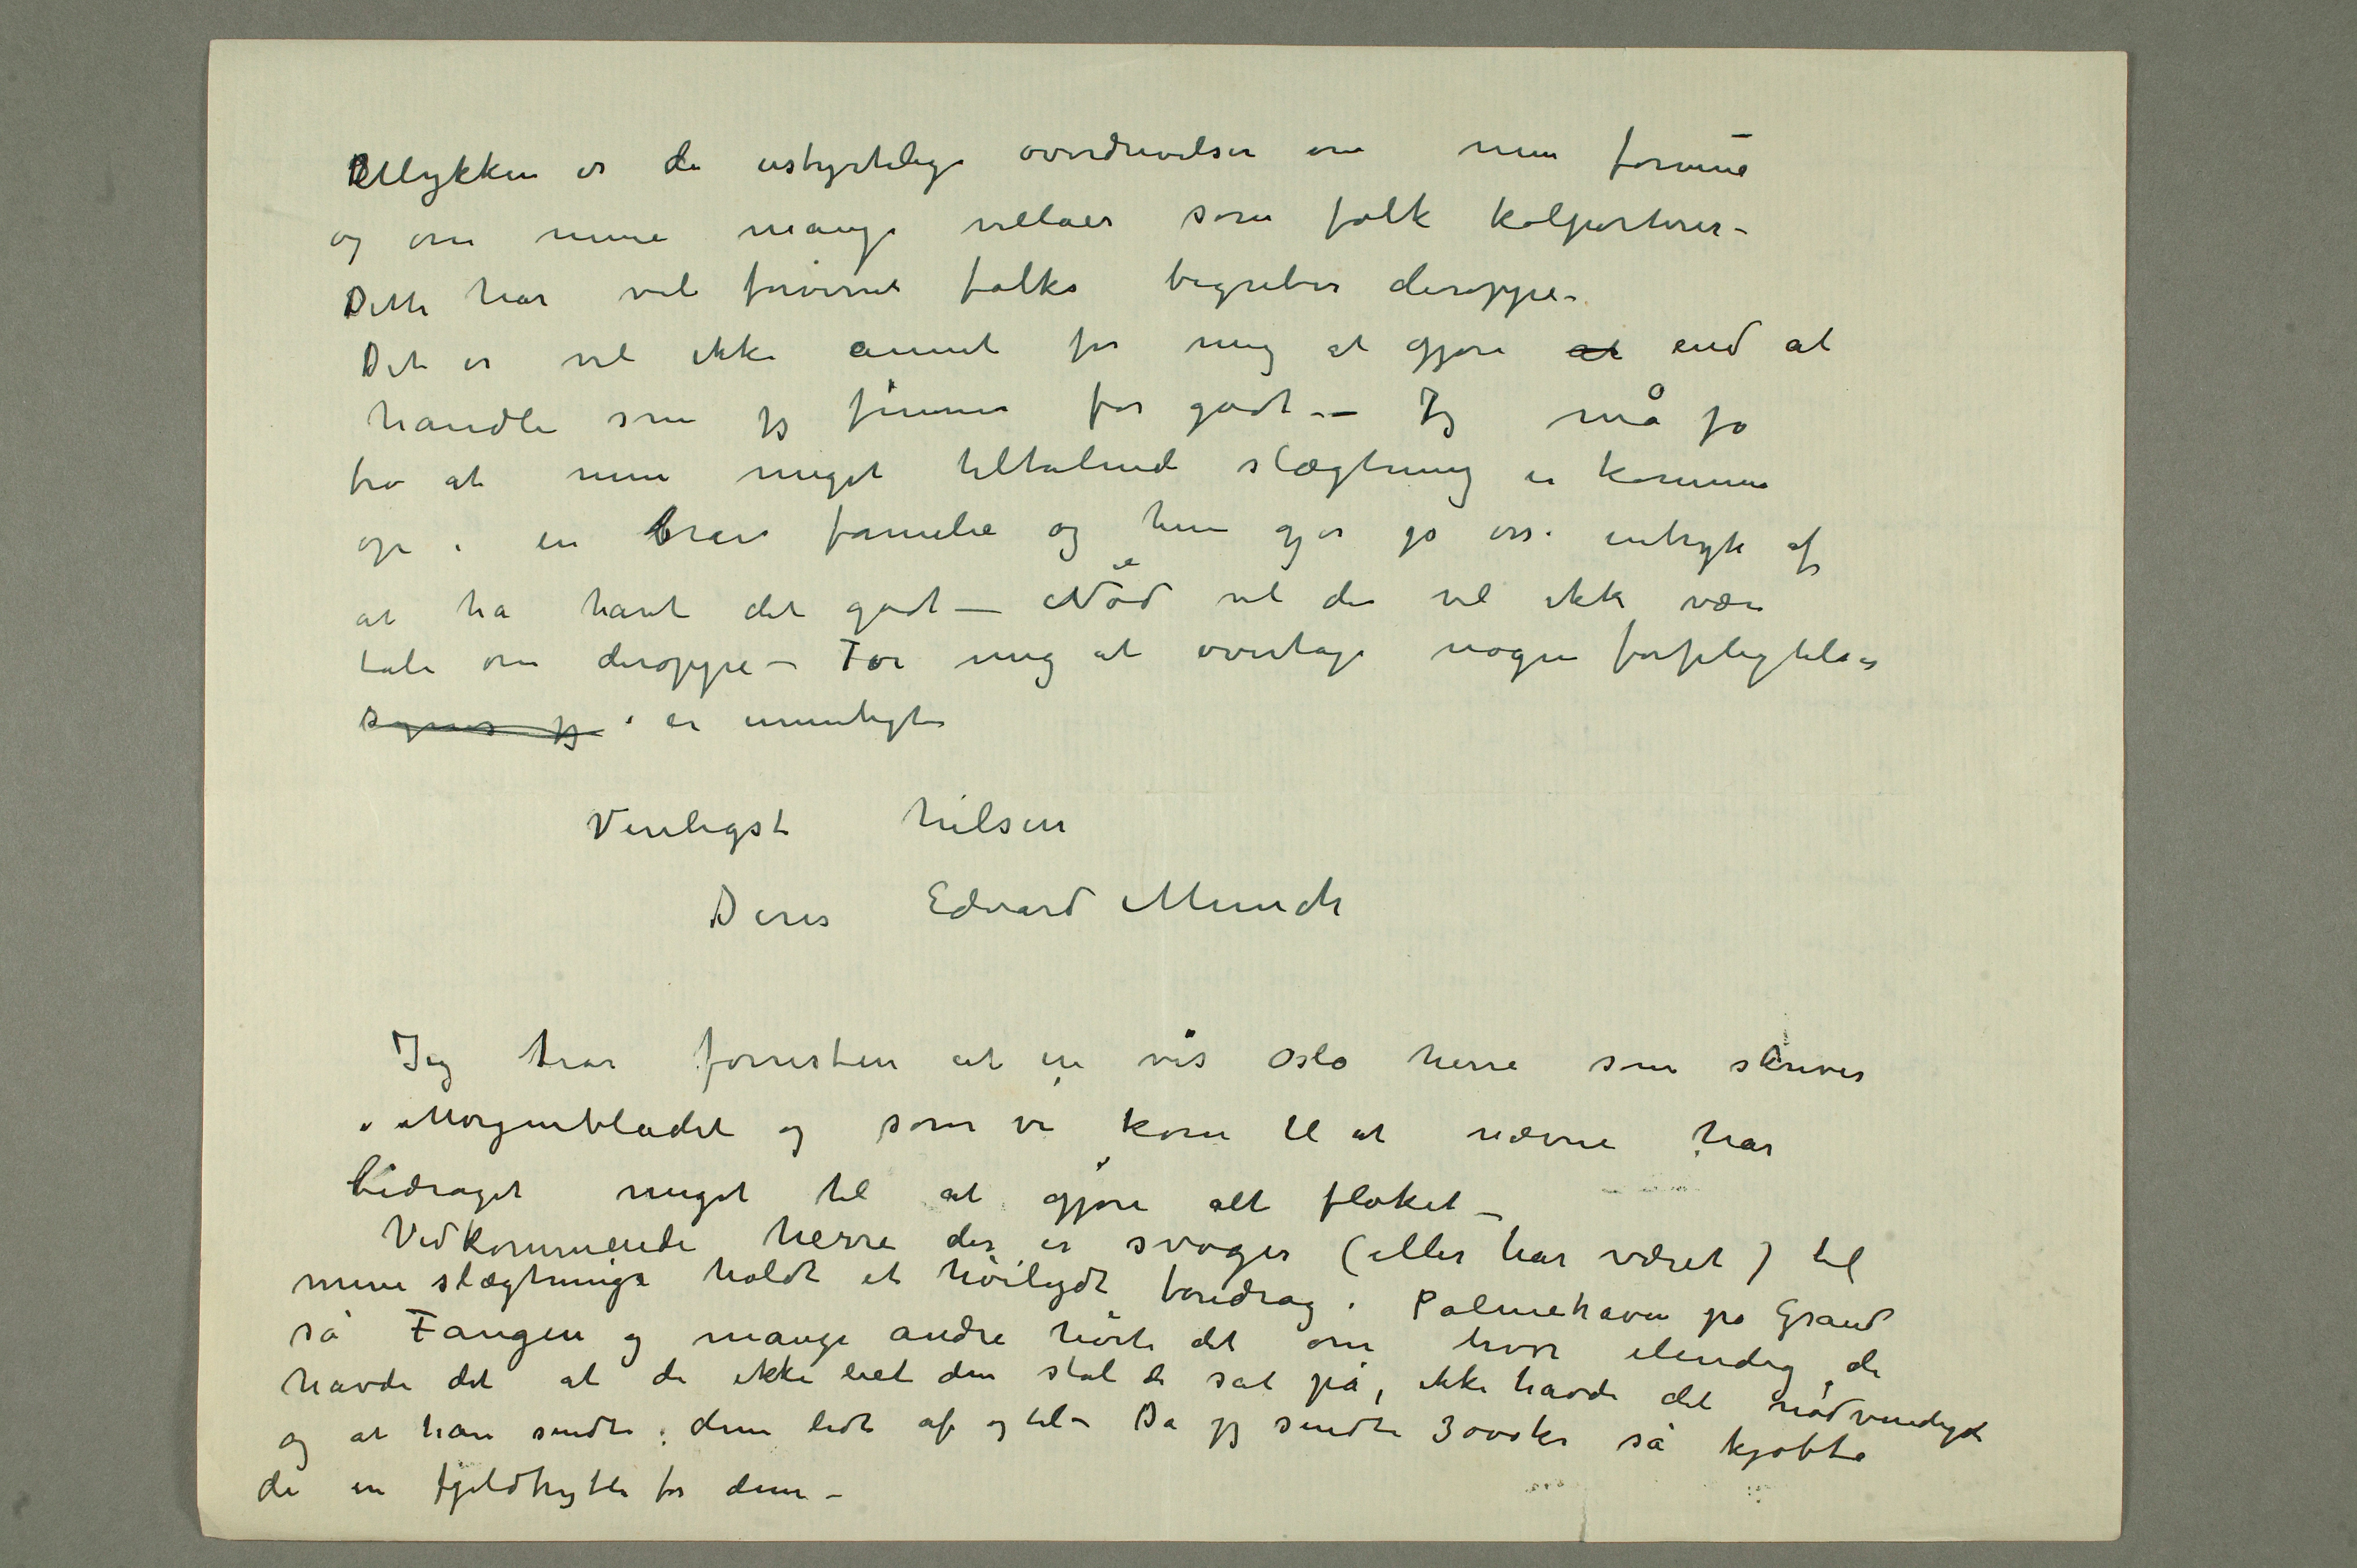 Ulykken er de ustyrtelige overdrivelser om min formue
og om mine mange villaer som folk kolporterer –
Dette har vel forvirret folks begreber deroppe –
Det er vel ikke annet for mig at gjøre at end at
handle som jeg finner for godt – Jeg må jo
tro at min meget tiltalende slægtning er kommen
op i en brav familie og hun gjør jo osså intryk af
at ha havt det godt – Nød vil der vel ikke være
tale om deroppe – For mig at overtage nogen forpligtelser
synes jeg er umuligt
Venligst hilsen
Deres Edvard Munch
Jeg tror forresten at en vis Oslo herre som skriver
i Morgenbladet og som vi kom til at nævne har
bidraget meget til at gjøre alt floket –
Vedkommende herre der er svoger (eller har været) til
mine slægtninge holdt et høilydt foredrag i Palmehaven på Grand
så Fangen og mange andre hørte det om hvor elendig de
havde det at de ikke eiet den stol de sat på, ikke havde det nødvendigste
og at han sendte dem lidt af og til – Da jeg sendte 3000 kr så kjøbte
de en fjeldhytte for dem –